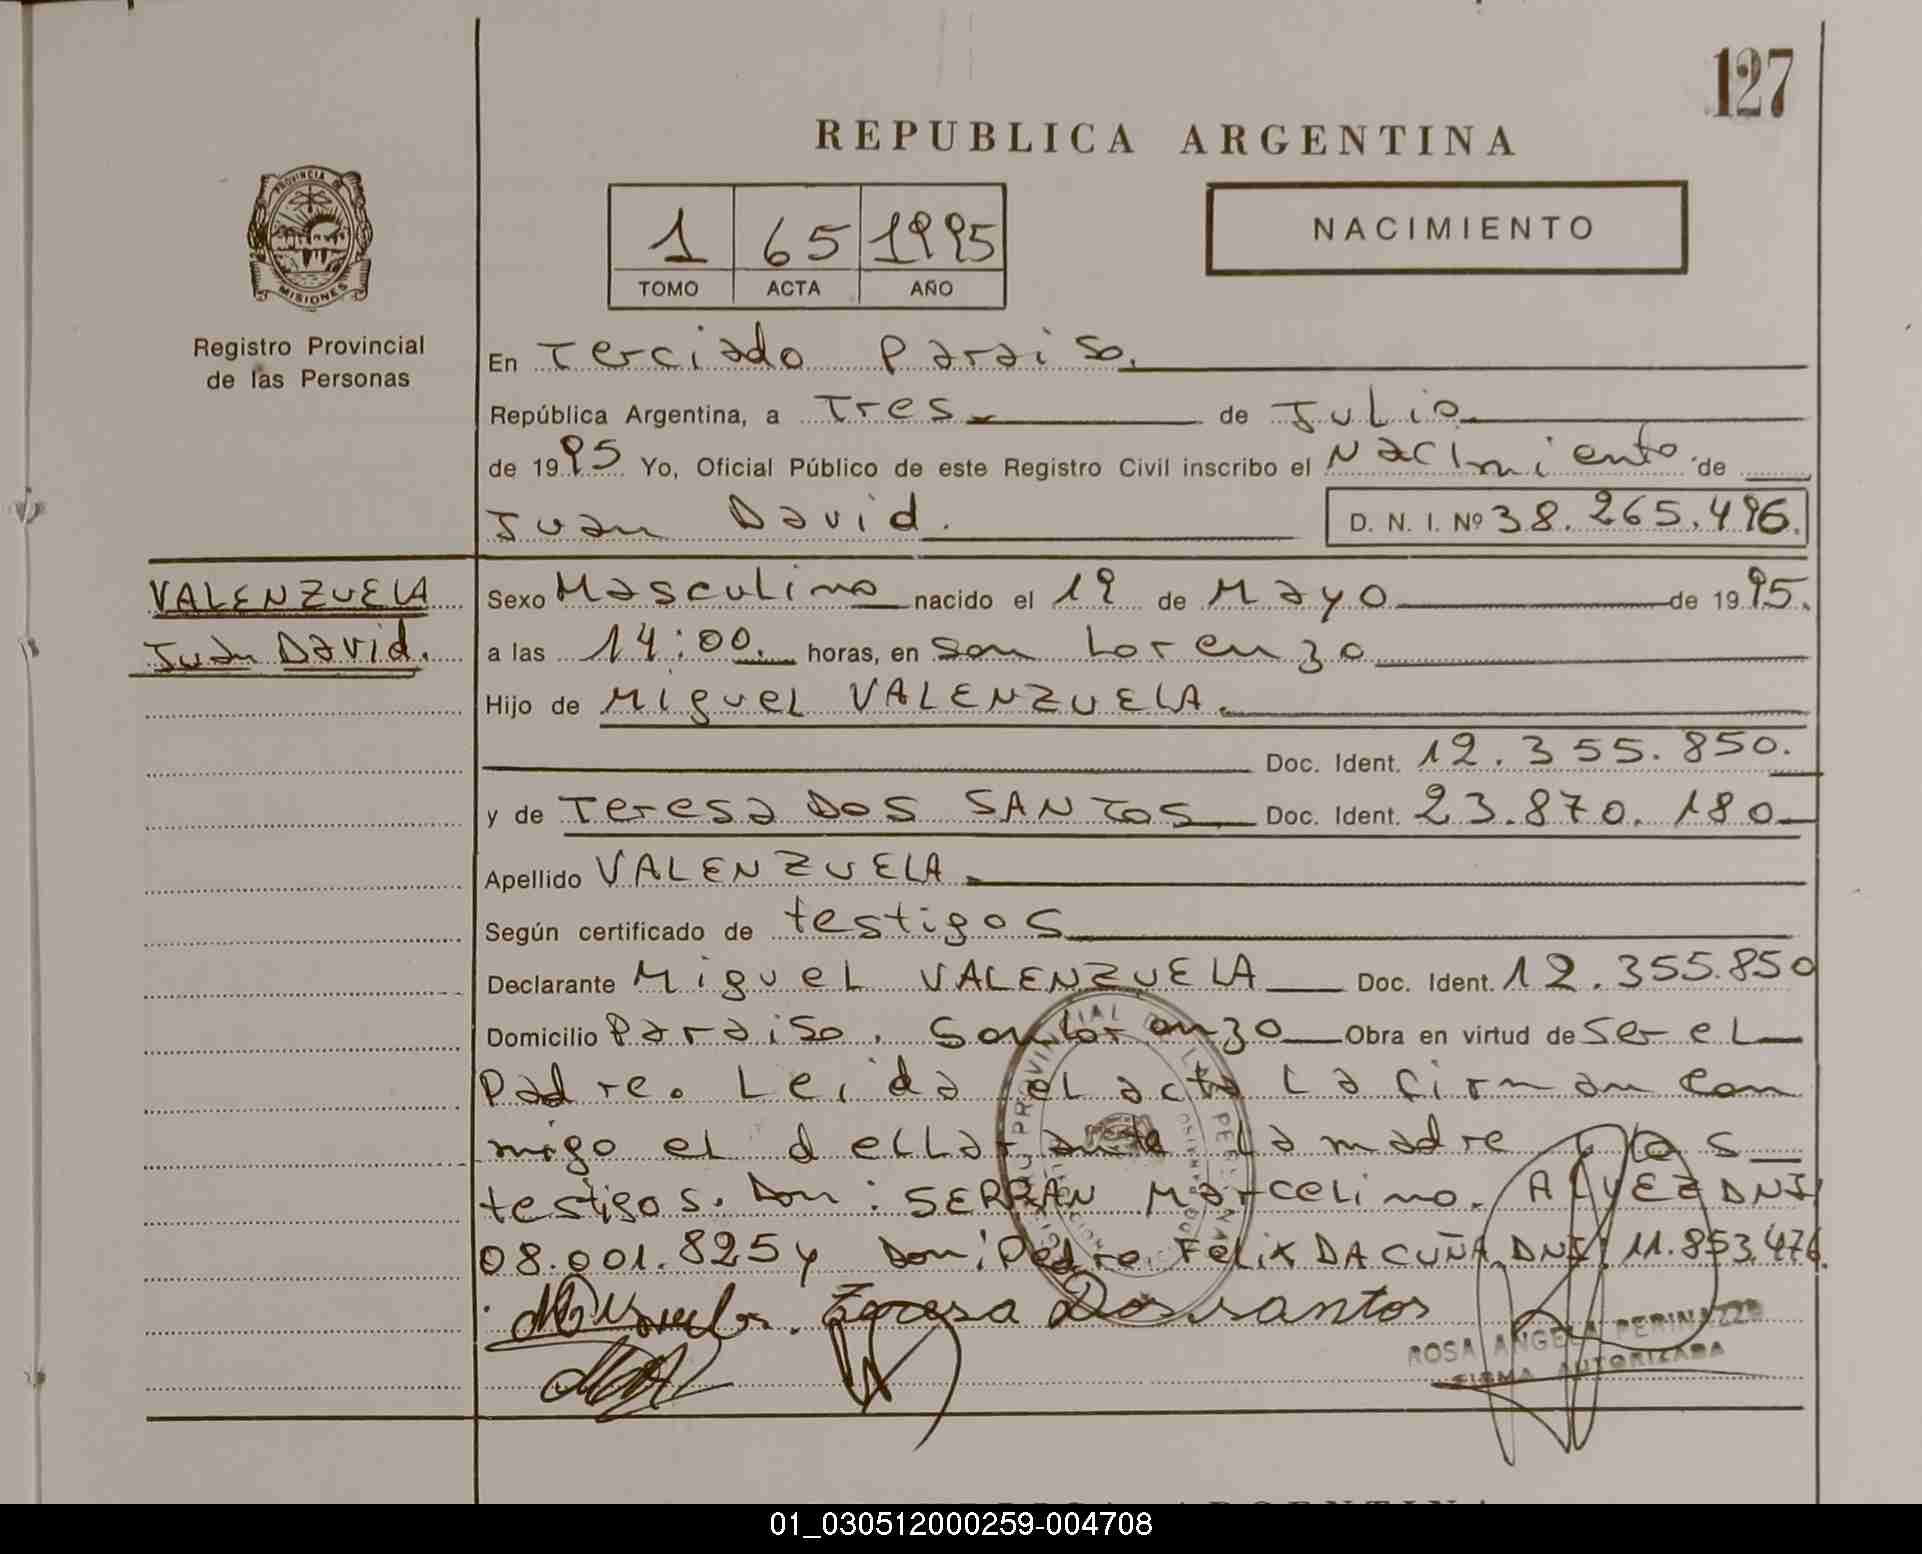 127
REPUBLICA ARGENTINA
PROVINCIA DE
MISIONES
Registro Provincial
de las Personas
1 65 1995
TOMO ACTA AÑO
NACIMIENTO
En Terciado Paraiso.
República Argentina, a Tres de Julio
de 1995 Yo, Oficial Público de este Registro Civil inscribo el Nacimiento de
Juan David. D. N. I. Nº 38.265.496.
VALENZUELA
Juan David.
Sexo Masculino nacido el 19 de Mayo de 1995.
a las 14:00. horas, en San Lorenzo
Hijo de Miguel VALENZUELA.
Doc. Ident. 12.355.850.
y de Teresa DOS SANTOS Doc. Ident. 23.870.180
Apellido VALENZUELA
Según certificado de testigos
Declarante Miguel VALENZUELA Doc. Ident. 12.355.850
Domicilio Paraiso. San Lorenzo Obra en virtud de Ser el
Padre. Leida el acta la firman con
migo el dellarante la madre y los
testigos. Don: SERRAN Marcelino. ALVEZ DNI
08.001.825 y Don: Pedro Felix DA CUÑA DNI: 11.853.476
Teresa Dos santos
ROSA ANGELA PERINAZZO
FIRMA AUTORIZADA
01_030512000259-004708